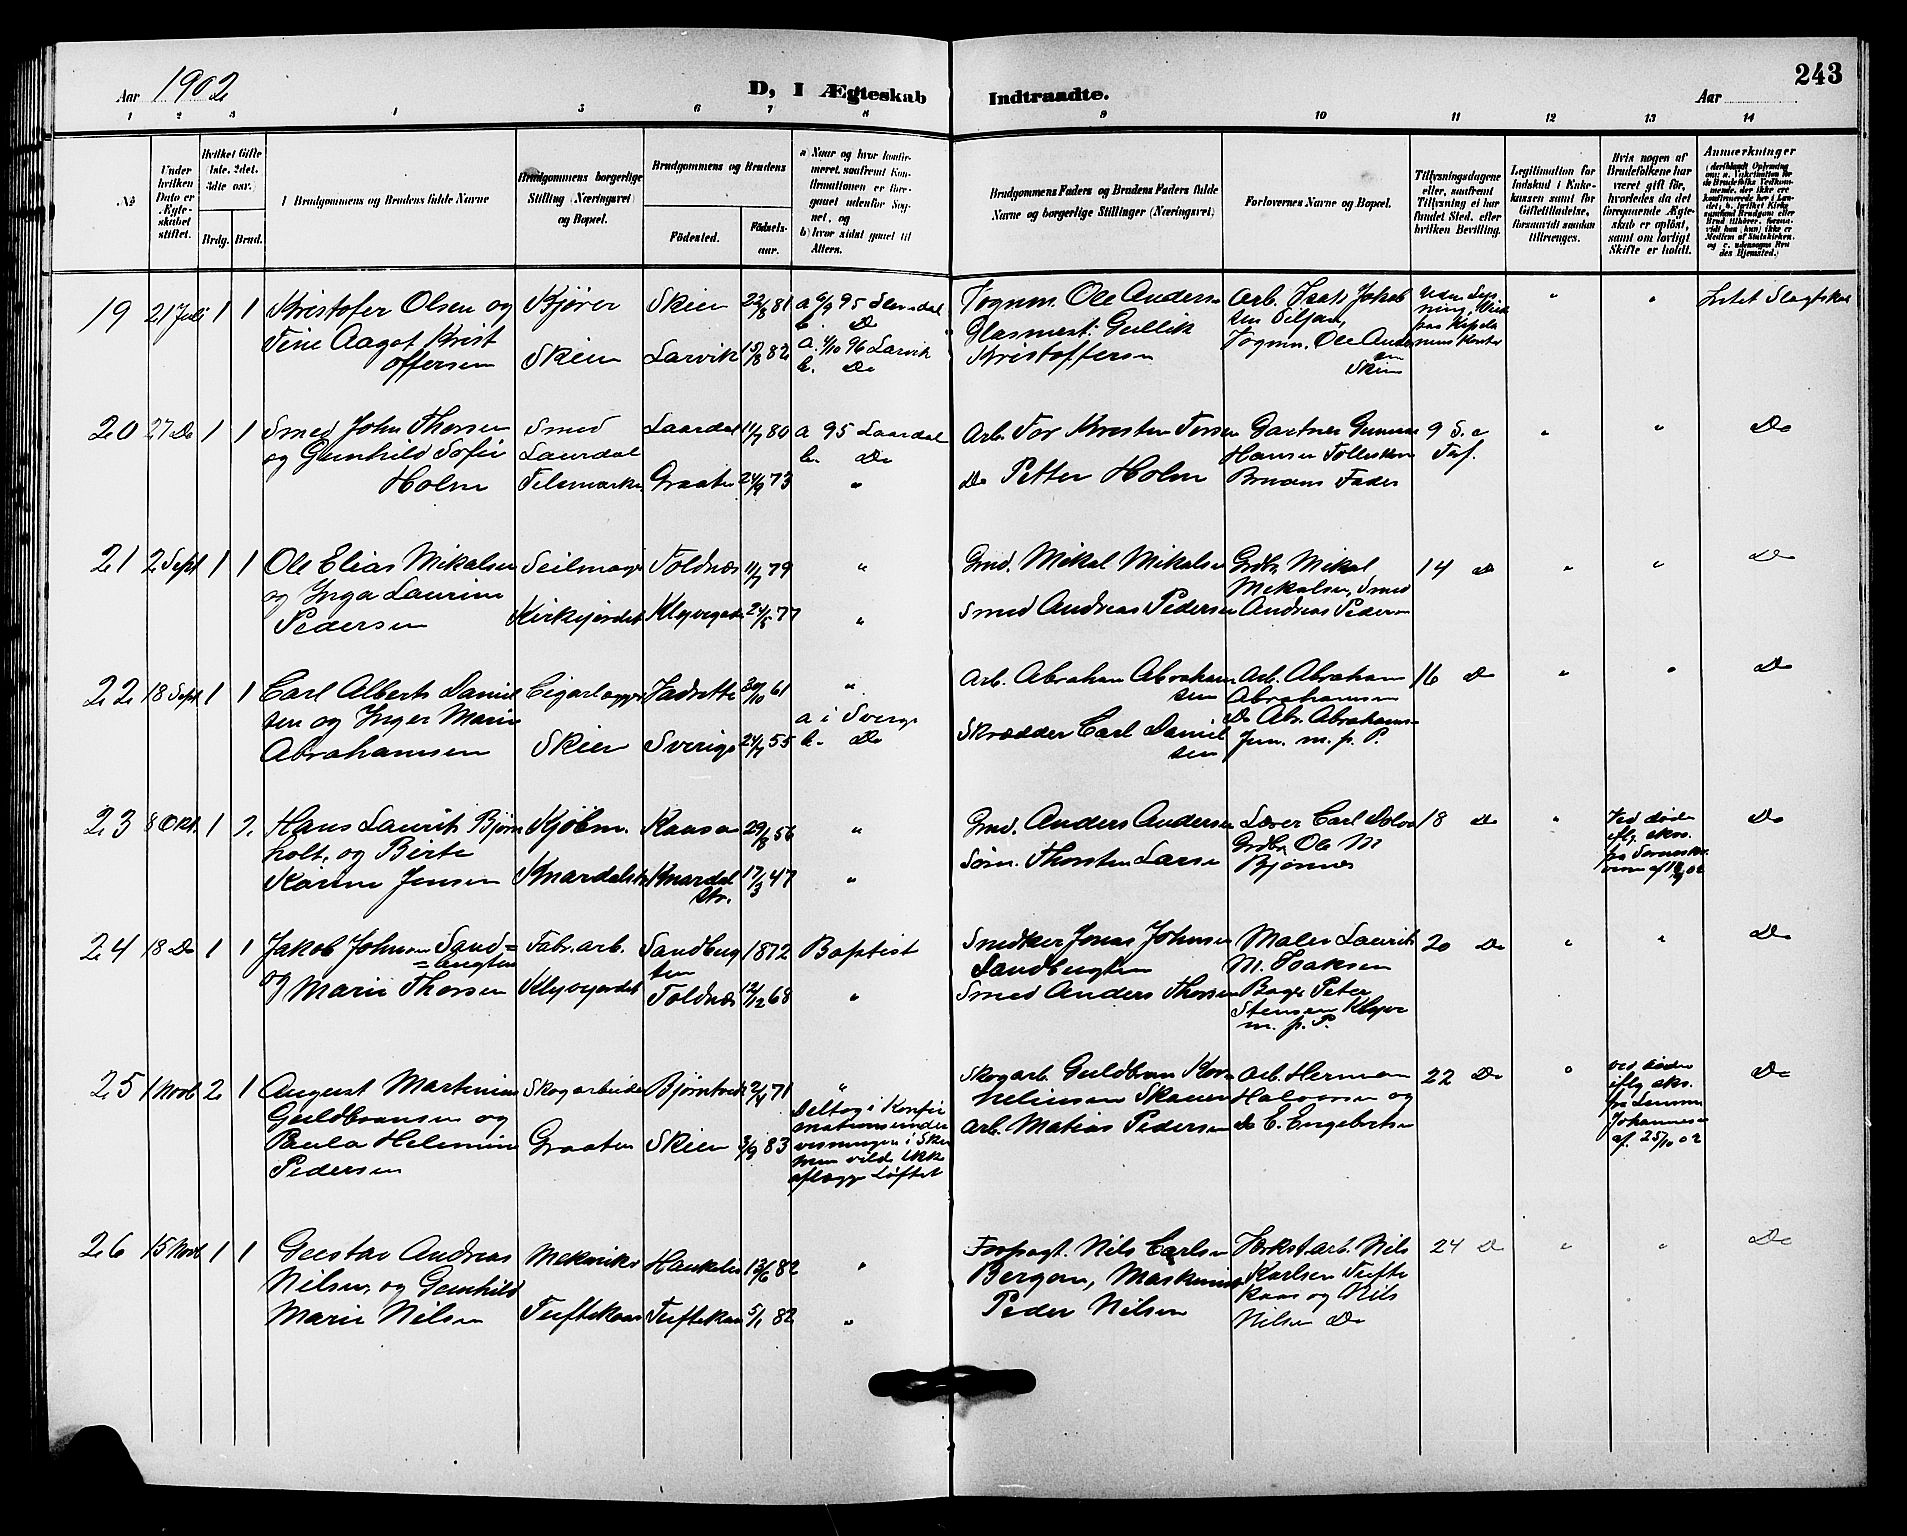 Aar 1902
D, I Ægteskab
Indtraadte.
Aar
243
1 2 3 4 5 6 7 8 9 10 11 12 13 14
No
Under hvilken Dato er Ægteskabet stiftet.
Hvilket Gifte (1ste, 2det, 3die osv.)
Brdg. Brud.
Brudgommens og Brudens fulde Navne
Brudgommens borgerlige Stilling (Næringsvei) og Bopæl.
Brudgommens og Brudens
Fødested.
Fødselsaar.
a) Naar og hvor konfirmeret, saafremt Konfirmationen er foregaaet udenfor Sognet, og
b) hvor sidst gaaet til Alters.
Brudgommens Faders og Brudens Faders fulde Navne og borgerlige Stillinger (Næringsvei)
Forlovernes Navne og Bopæl.
Tillysningsdagene eller, saafremt Tillysning ei har fundet Sted, efter hvilken Bevilling.
Legitimation for Indskud i Enkekassen samt for Giftetilladelse, forsaavidt saadan tiltrænges.
Hvis nogen af Brudefolkene har været gift før, hvorledes da det foregaaende Ægteskab er opløst, samt om lovligt Skifte er holdt.
Anmærkninger
19 21 Juli 1 1 Kristofer Olsen og
Tine Aagot Krist
offersen
Kjører
Skien
Skien 22/8 81
Larvik 15/8 82
a 6/9 95 Slemdal
b. Do
a. 1/10 96 Larvik
b. Do
Vognm. Ole Anders
Glasmest. Gullik
Kristoffersen
Arb. Isak Jakob
sen
Vognm. Ole Ander
sen
Skien
" " Intet Slegtskab
20 27 Do 1 1 Smed John Thorsen
og Gunhild Sofie
Holm
Smed
Laurdal
Telemarken
Laardal 11/7 80
Graaten 24/9 73
a 95 Laardal
b. Do
"
Arb. Tor Kristen Torsen
Do Petter Holm
Gartner Gunnar
Hansen Folleskar
Brudens Fader
9 S. e
Tref.
" " Do
21 2 Sept 1 1 Ole Elias Mikalsen
og Inga Laurine
Pedersen
Seilmager
Kirkejordet
Foldnæs 11/7 79
Klyvegaden 24/5 77
"
"
Gmd. Mikal Mikalsen
Smed Andreas Pedersen
Grdbr. Mikal
Mikalsen, Smed
Andreas Pedersen
14 Do " " Do
22 18 Sept 1 1 Carl Albert Daniel
sen og Inger Marie
Abrahamsen
Cigarlægger
Skien
30/10 61
Sverige 24/7 55
"
a i Sverige
b. Do
Arb. Abraham Abraham
sen
Skrædder Carl Daniel
sen
Arb. Abraham
Abrahamsen
Do Abr. Abrahams
Jun. m. p. P.
16 Do " " Do
23 8 Okt. 1 2. Hans Laurits Bjørn
holt, og Birte
Karine Jensen
Kjøbm.
Knardalstr
Kaasa 29/8 56
Knardal
str. 17/3 47
"
"
Gmd. Anders Andersen
Søm. Thorsten Larsen
Lærer Carl
Grdbr. Ole M
Bjørnnes
18 Do "
Ved døden
iflg. skss.
fra Sorenskr
veren af 18/9 02
Do
24 18 Do 1 1 Jakob Johnsen Sand=
=bugten
og Marie Thorsen
Fabr. arb.
Klyvejordet
Sandbug
ten 1872
Foldnæs 12/12 68
Baptist
"
Snedker Jonas Johnsen
Sandbugten
Smed Anders Thorsen
Maler Laurits
M. Isaksen
Bager Peter
Stensen Klyve
m. p. P.
20 Do " " Do
25 1 Novb 2. 1 August Martinius
Guldbransen og
Paula Helemine
Pedersen
Skogarbeider
Graaten
Bjørntvedt 2/4 71
Skien 3/9 83
"
Deltog i Konfir
mationsunder
visningen i Skien
men vilde ikke
aflægge Løftet
Skogarb. Guldbran Kor
nelinsen Skauen
Arb. Matias Pedersen
Arb. Herman
Halvorsen og
do E. Engebretsen
22 Do "
ved døden
iflg. sks.
fra Lensm
Johannesen
af. 25/10 02
Do
26 15 Novb 1 1 Gustav Andreas
Nilsen, og Gunhild
Marie Nilsen
Mekanikr
Tuftekaas
Haukelien 13/6 82
Tuftekaas 5/1 82
"
"
Forpagt. Nils Carlsen
Bergan, Maskinist
Peder Nilsen
Værkst. arb. Nils
Karlsen Tufte
kaas og Nils
Nilsen Do
24 Do " " Do